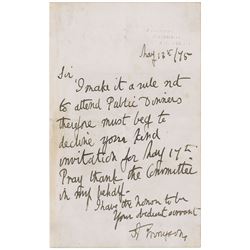 May 13th/75
Sir
I make it a rule not
to attend Public Dinners
therefore must beg to
decline your kind
invitation for May 17th
Pray thank the Committee
in my behalf.
I have the honor to be
Your obedient servant